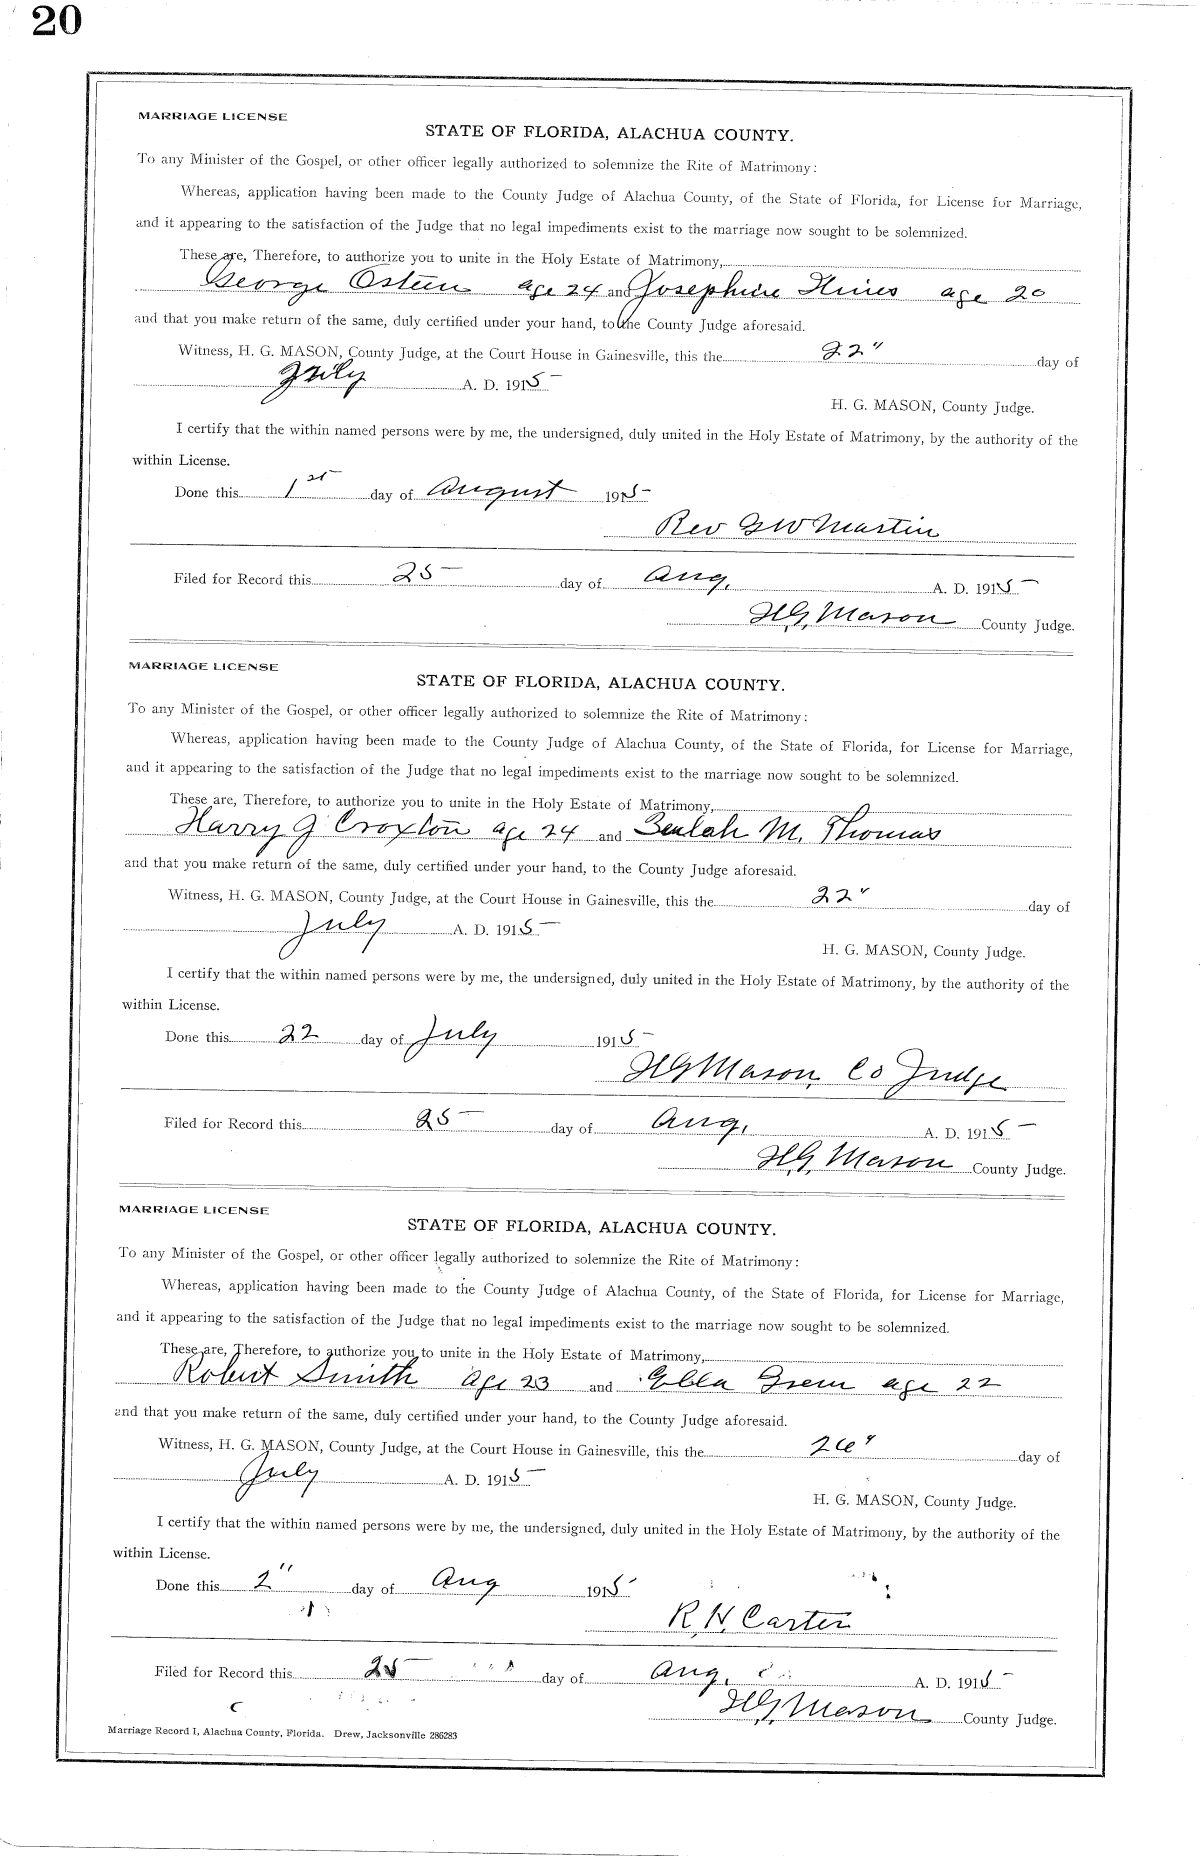 20
MARRIAGE LICENSE
STATE OF FLORIDA, ALACHUA COUNTY.
To any Minister of the Gospel, or other officer legally authorized to solemnize the Rite of Matrimony:
Whereas, application having been made to the County Judge of Alachua County, of the State of Florida, for License for Marriage,
and it appearing to the satisfaction of the Judge that no legal impediments exist to the marriage now sought to be solemnized.
These are, Therefore, to authorize you to unite in the Holy Estate of Matrimony,
George Osteen age 24 and Josephine Hines age 20
and that you make return of the same, duly certified under your hand, to the County Judge aforesaid.
Witness, H. G. MASON, County Judge, at the Court House in Gainesville, this the 22" day of
July A. D. 1915
H. G. MASON, County Judge.
I certify that the within named persons were by me, the undersigned, duly united in the Holy Estate of Matrimony, by the authority of the
within License.
Done this 1st day of August 1915
Rev G W Martin
Filed for Record this 25 day of Aug. A. D. 1915
H.G. Mason County Judge.
MARRIAGE LICENSE
STATE OF FLORIDA, ALACHUA COUNTY.
To any Minister of the Gospel, or other officer legally authorized to solemnize the Rite of Matrimony:
Whereas, application having been made to the County Judge of Alachua County, of the State of Florida, for License for Marriage,
and it appearing to the satisfaction of the Judge that no legal impediments exist to the marriage now sought to be solemnized.
These are, Therefore, to authorize you to unite in the Holy Estate of Matrimony,
Harry J Croxton age 24 and Beulah M. Thomas
and that you make return of the same, duly certified under your hand, to the County Judge aforesaid.
Witness, H. G. MASON, County Judge, at the Court House in Gainesville, this the 22" day of
July A. D. 1915
H. G. MASON, County Judge.
I certify that the within named persons were by me, the undersigned, duly united in the Holy Estate of Matrimony, by the authority of the
within License.
Done this 22 day of July 1915
H G Mason, Co Judge
Filed for Record this 25 day of Aug. A. D. 1915
H.G. Mason County Judge.
MARRIAGE LICENSE
STATE OF FLORIDA, ALACHUA COUNTY.
To any Minister of the Gospel, or other officer legally authorized to solemnize the Rite of Matrimony:
Whereas, application having been made to the County Judge of Alachua County, of the State of Florida, for License for Marriage,
and it appearing to the satisfaction of the Judge that no legal impediments exist to the marriage now sought to be solemnized.
These are, Therefore, to authorize you to unite in the Holy Estate of Matrimony,
Robert Smith age 23 and Ella Green age 22
and that you make return of the same, duly certified under your hand, to the County Judge aforesaid.
Witness, H. G. MASON, County Judge, at the Court House in Gainesville, this the 26" day of
July A. D. 1915
H. G. MASON, County Judge.
I certify that the within named persons were by me, the undersigned, duly united in the Holy Estate of Matrimony, by the authority of the
within License.
Done this 2" day of Aug 1915
R. H. Carter
Filed for Record this 25 day of Aug. A. D. 1915
H.G. Mason County Judge.
Marriage Record I, Alachua County, Florida. Drew, Jacksonville 286283